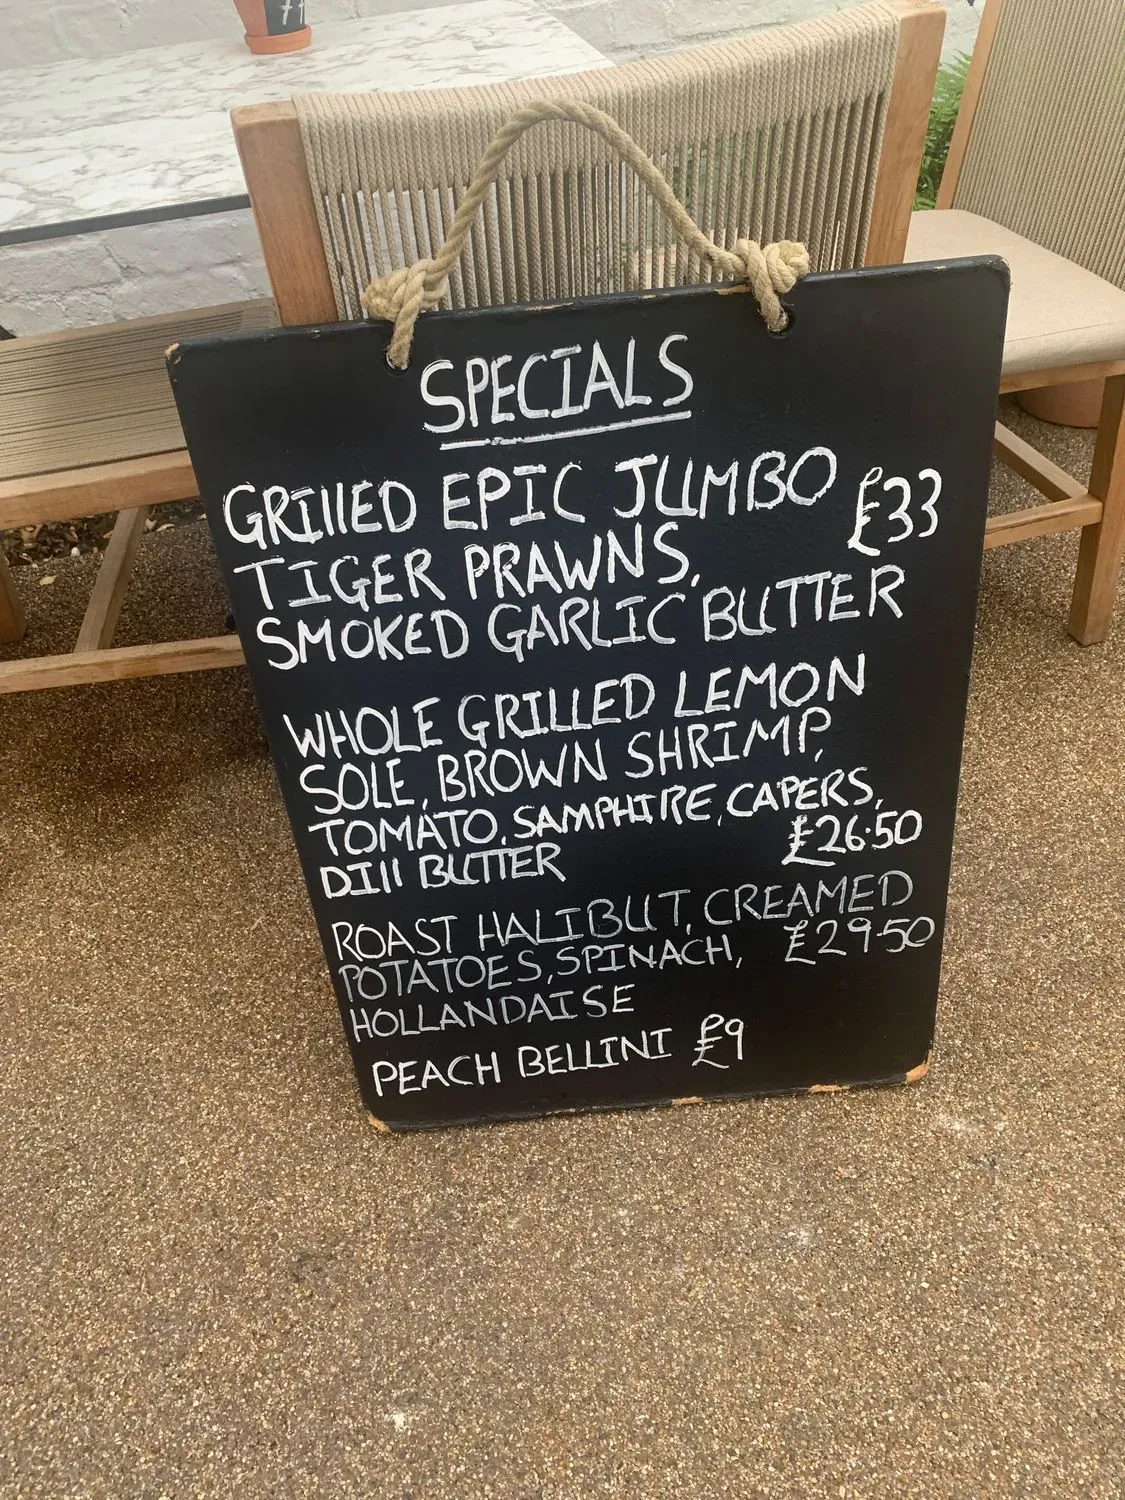 SPECIALS
GRIllED EPIC JUMBO £33
TIGER PRAWNS,
SMOKED GARLIC BUTTER
WHOLE GRILLED LEMON
SOLE, BROWN SHRIMP,
TOMATO, SAMPHIRE, CAPERS,
DIll BUTTER £26.50
ROAST HALIBUT, CREAMED
POTATOES, SPINACH, £29.50
HOLLANDAISE
PEACH BELLINI £9